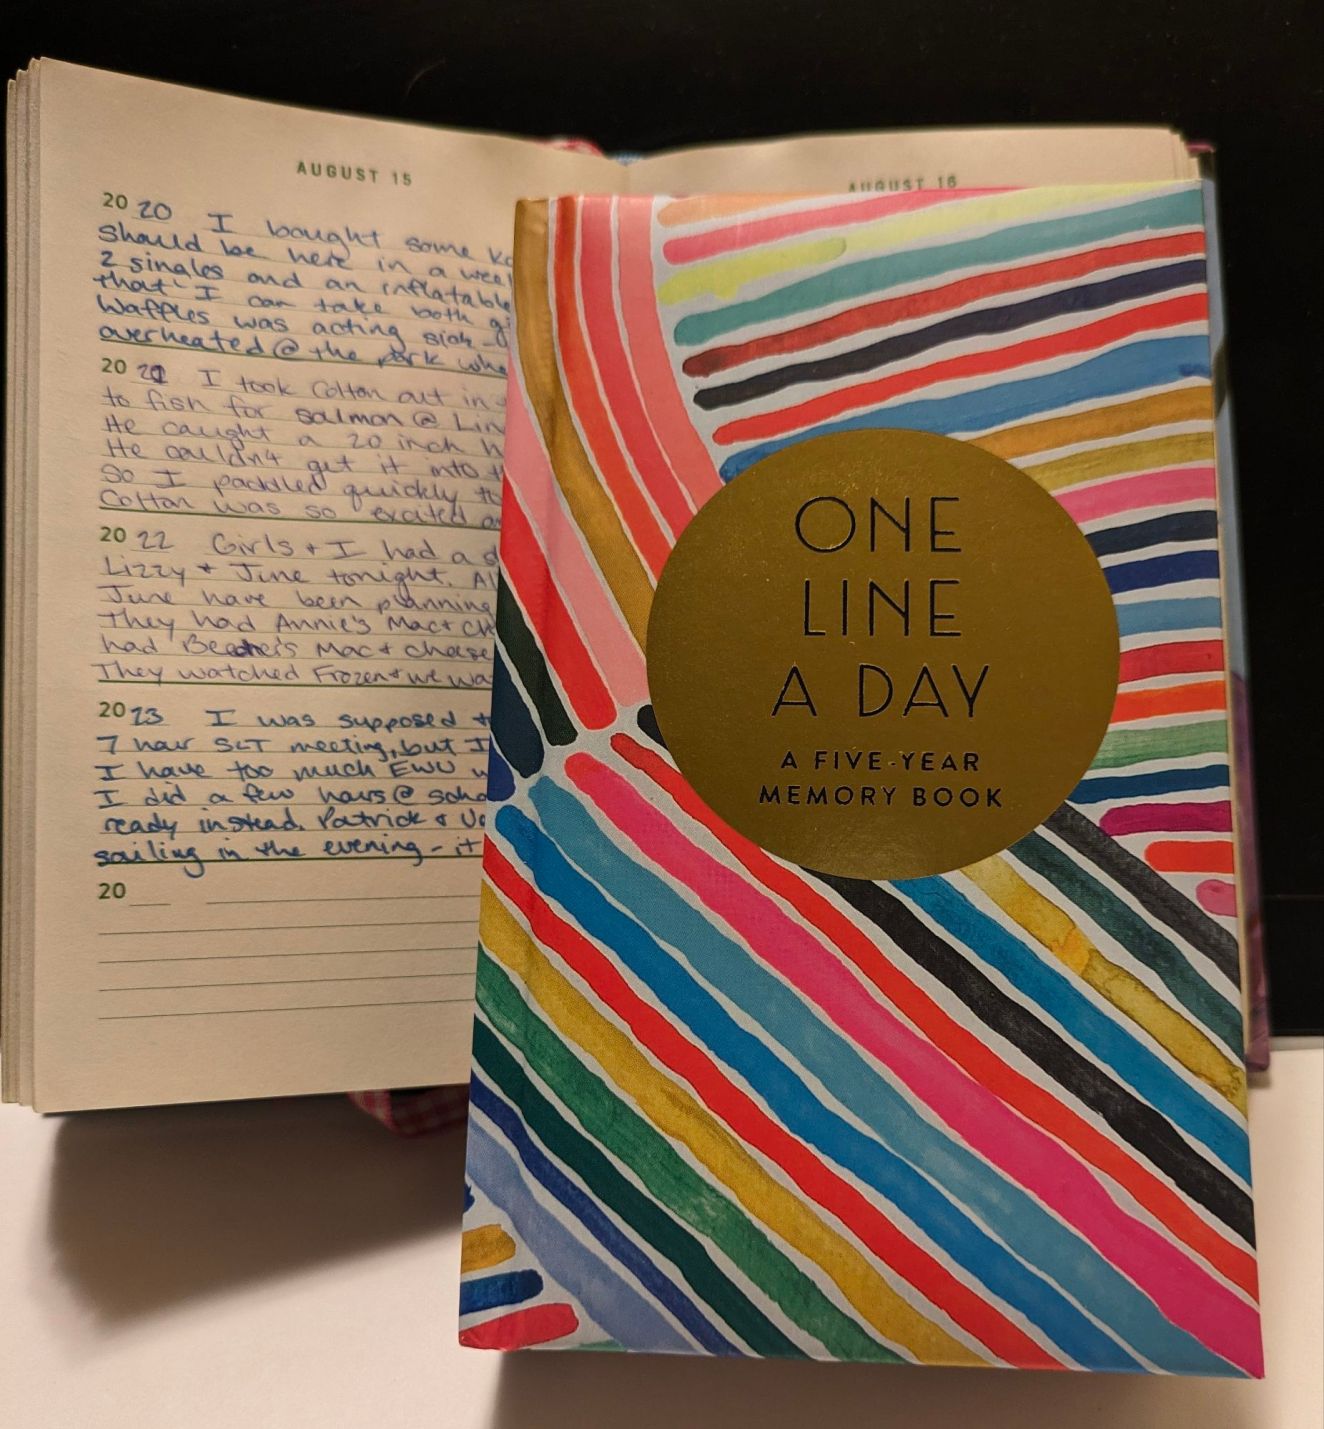 AUGUST 15
20 20 I bought some
should be here in a wee
2 singles and an inflatable
that I can take both gi
Waffles was acting sick -
overheated @ the park whe
20 21 I took Colton out in
to fish for salmon @ Lin
He caught a 20 inch
He couldn't get it into
So I paddled quickly to
Colton was so excited
20 22 Girls + I had a
Lizzy + June tonight. Al
June have been planning
They had Annie's Mac + ch
had Beecher's Mac + cheese
They watched Frozen + we wa
20 23 I was supposed
7 hour SLT meeting, but I
I have too much EWU
I did a few hours @ scho
ready instead. Patrick &
sailing in the evening - it
20
AUGUST 16
ONE
LINE
A DAY
A FIVE-YEAR
MEMORY BOOK